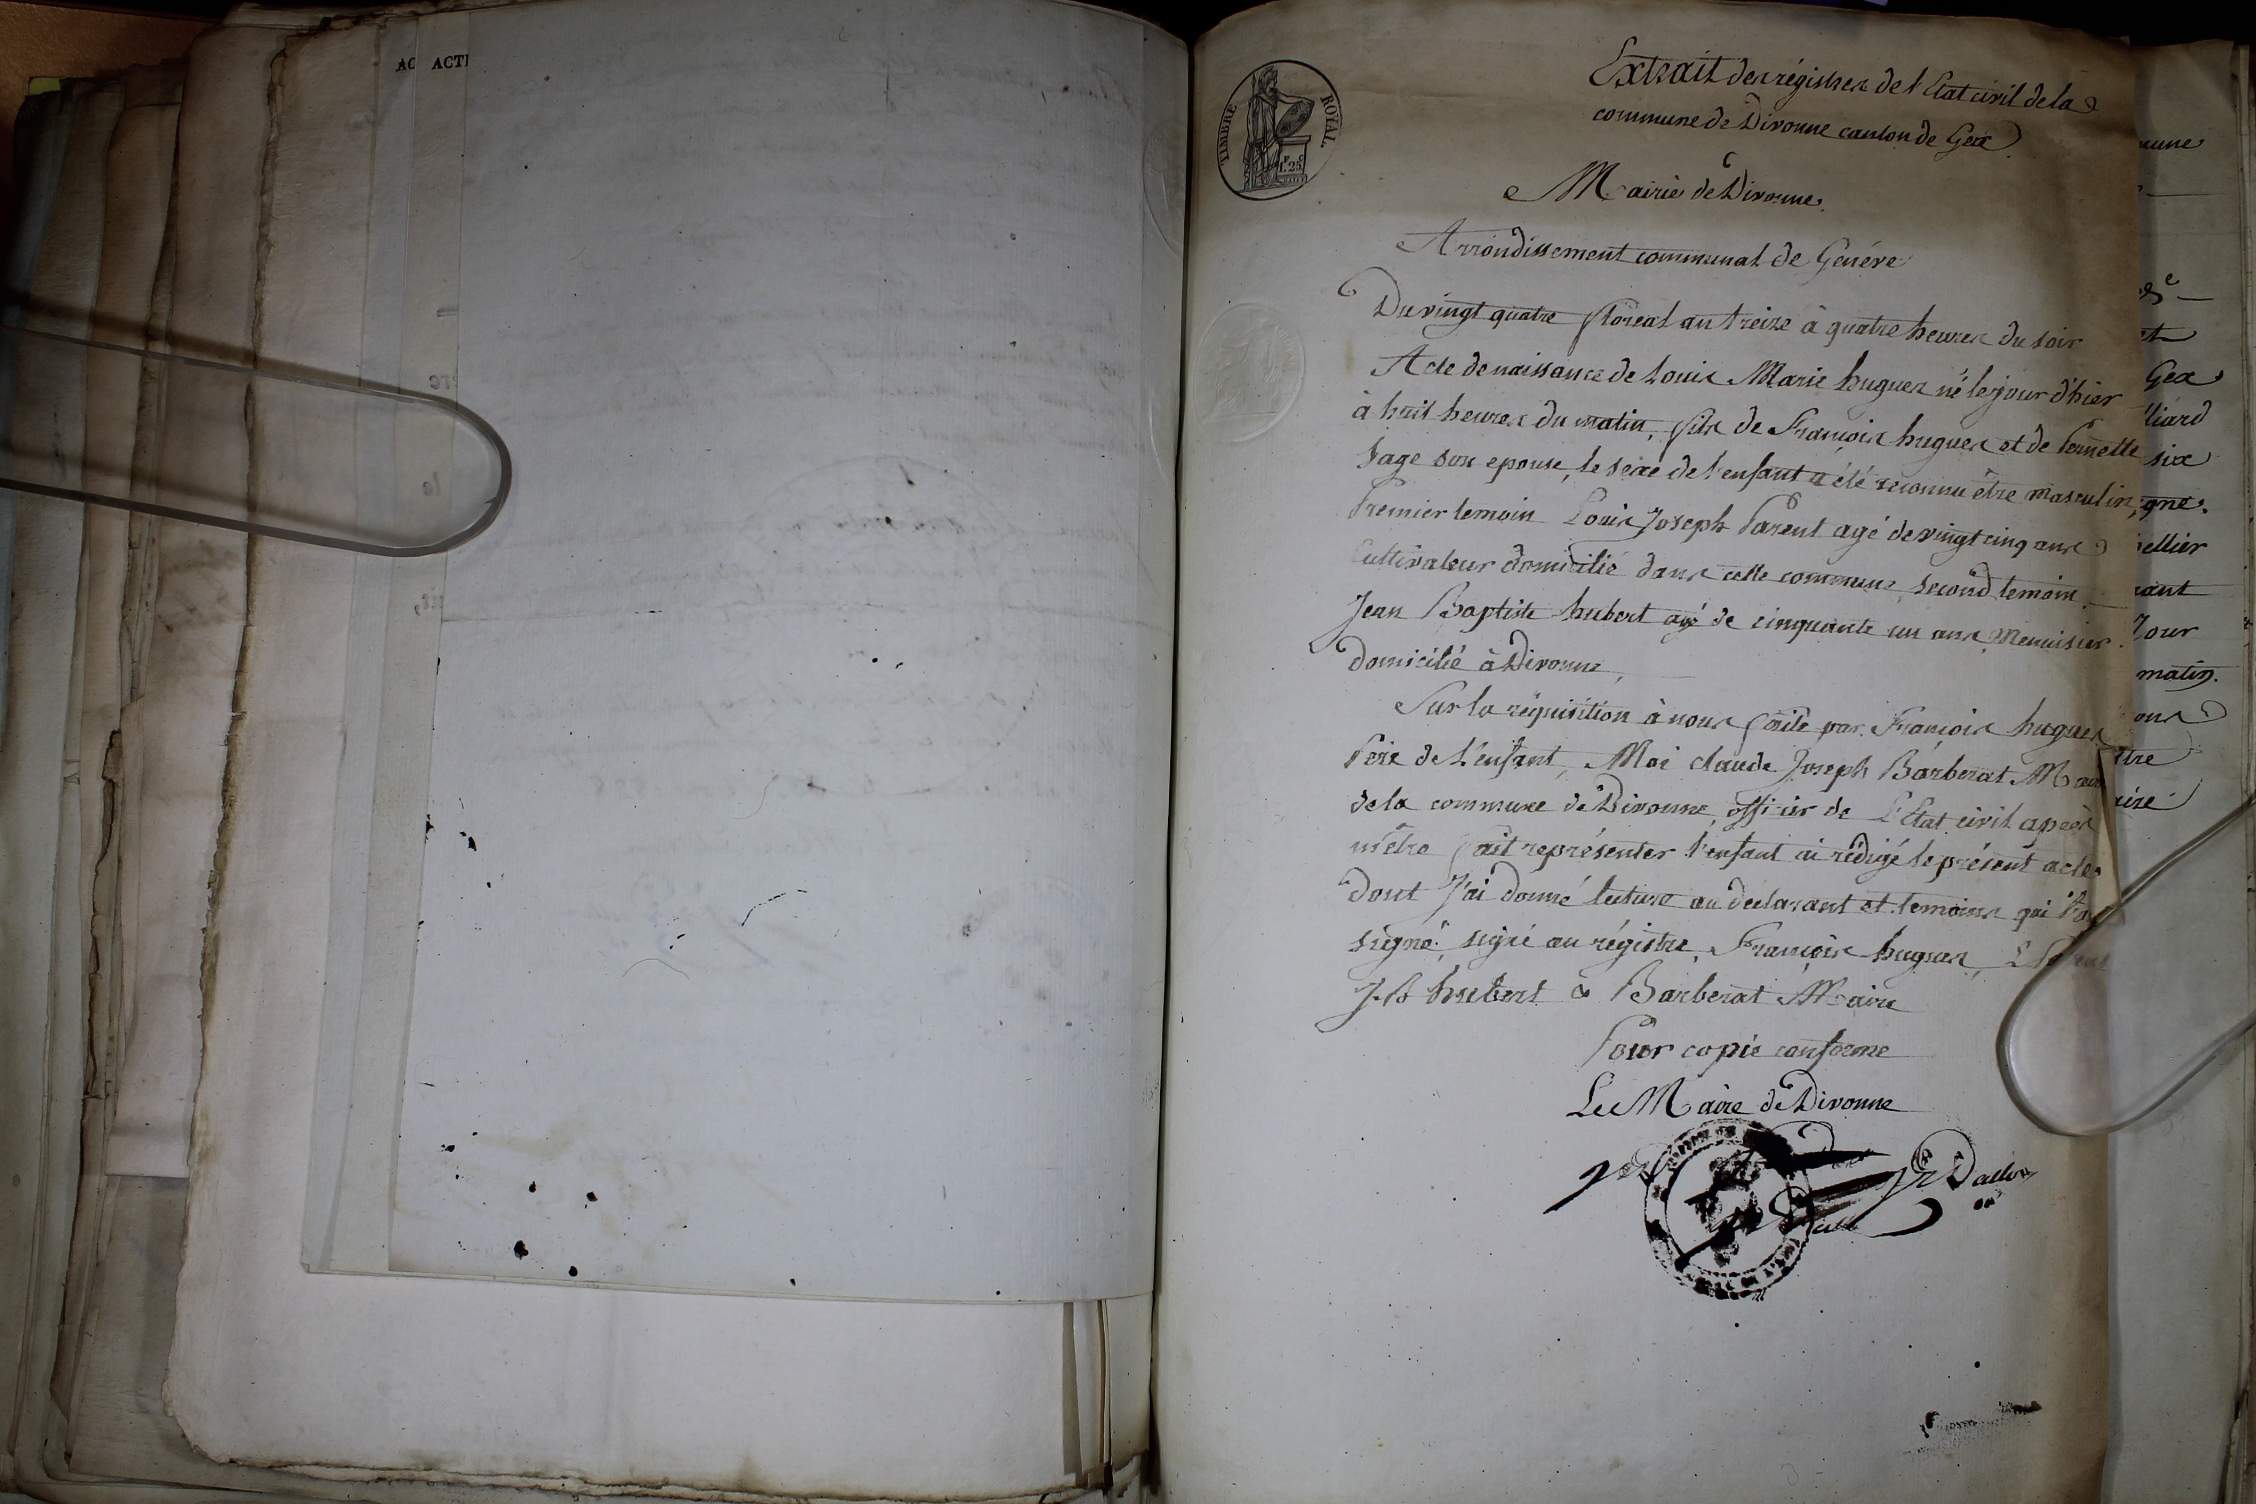 AC ACTE
TIMBRE ROYAL.
F. C
1.25
Extrait des régistres de l'Etat civil de la
commune de Divonne canton de Gex
Mairie de Divonne.
Arrondissement communal de Genéve
Du vingt quatre floréal an treize à quatre heures du soir
Acte de naissance de Louis Marie hugues né le jour d'hier
à huit heures du matin, fils de François hugues et de Pernette
Sage son epouse, le sexe de l'enfant a été reconnu être masculin,
Premier temoin Louis Joseph Parent agé de vingt cinq ans
Cultivateur domicilié dans cette commune, second temoin
Jean Baptiste hubert agé de cinquante un ans Menuisier
domicilié à Divonne,
Sur la réquisition à nous faite par François hugues
Pere de L'enfant, Moi claude Joseph Barberat Maire
de la commune de Divonne, officier de L'Etat civil après
m'être fait représenter l'enfant ai rédigé le présent acte
dont J'ai donné lecture au declarant et temoins qui
signé, signé au régistre, François hugues,
J. B hubert & Barberat Maire
Pour copie conforme
Le Maire de Divonne
mune
et
Gex
liard
six
gné.
ellier
rant
Jour
matin.
ons
tre
aire